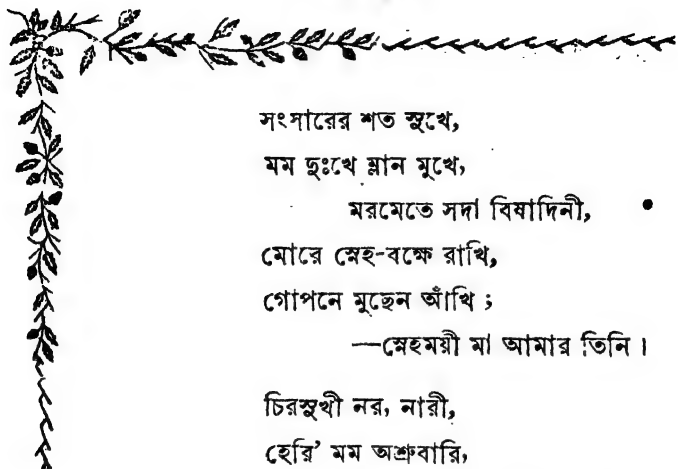 সংসারের শত সুখে,
মম দুঃখে ম্লান মুখে,
মরমেতে সদা বিষাদিনী,
মোরে স্নেহ-বক্ষে রাখি,
গোপনে মুছেন আঁখি ;
—স্নেহময়ী মা আমার তিনি ।
চিরসুখী নর, নারী,
হেরি' মম অশ্রুবারি,